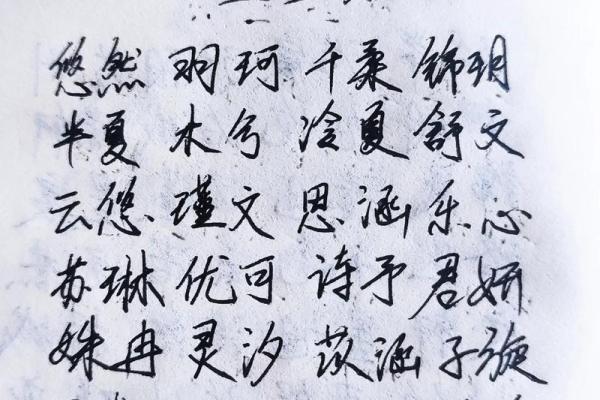 悠然 羽珂 千柔 锦玥
半夏 木兮 冷夏 舒文
云悠 瑾文 思涵 乐心
苏琳 优可 诗予 君妍
姝冉 灵汐 苡涵 子璇